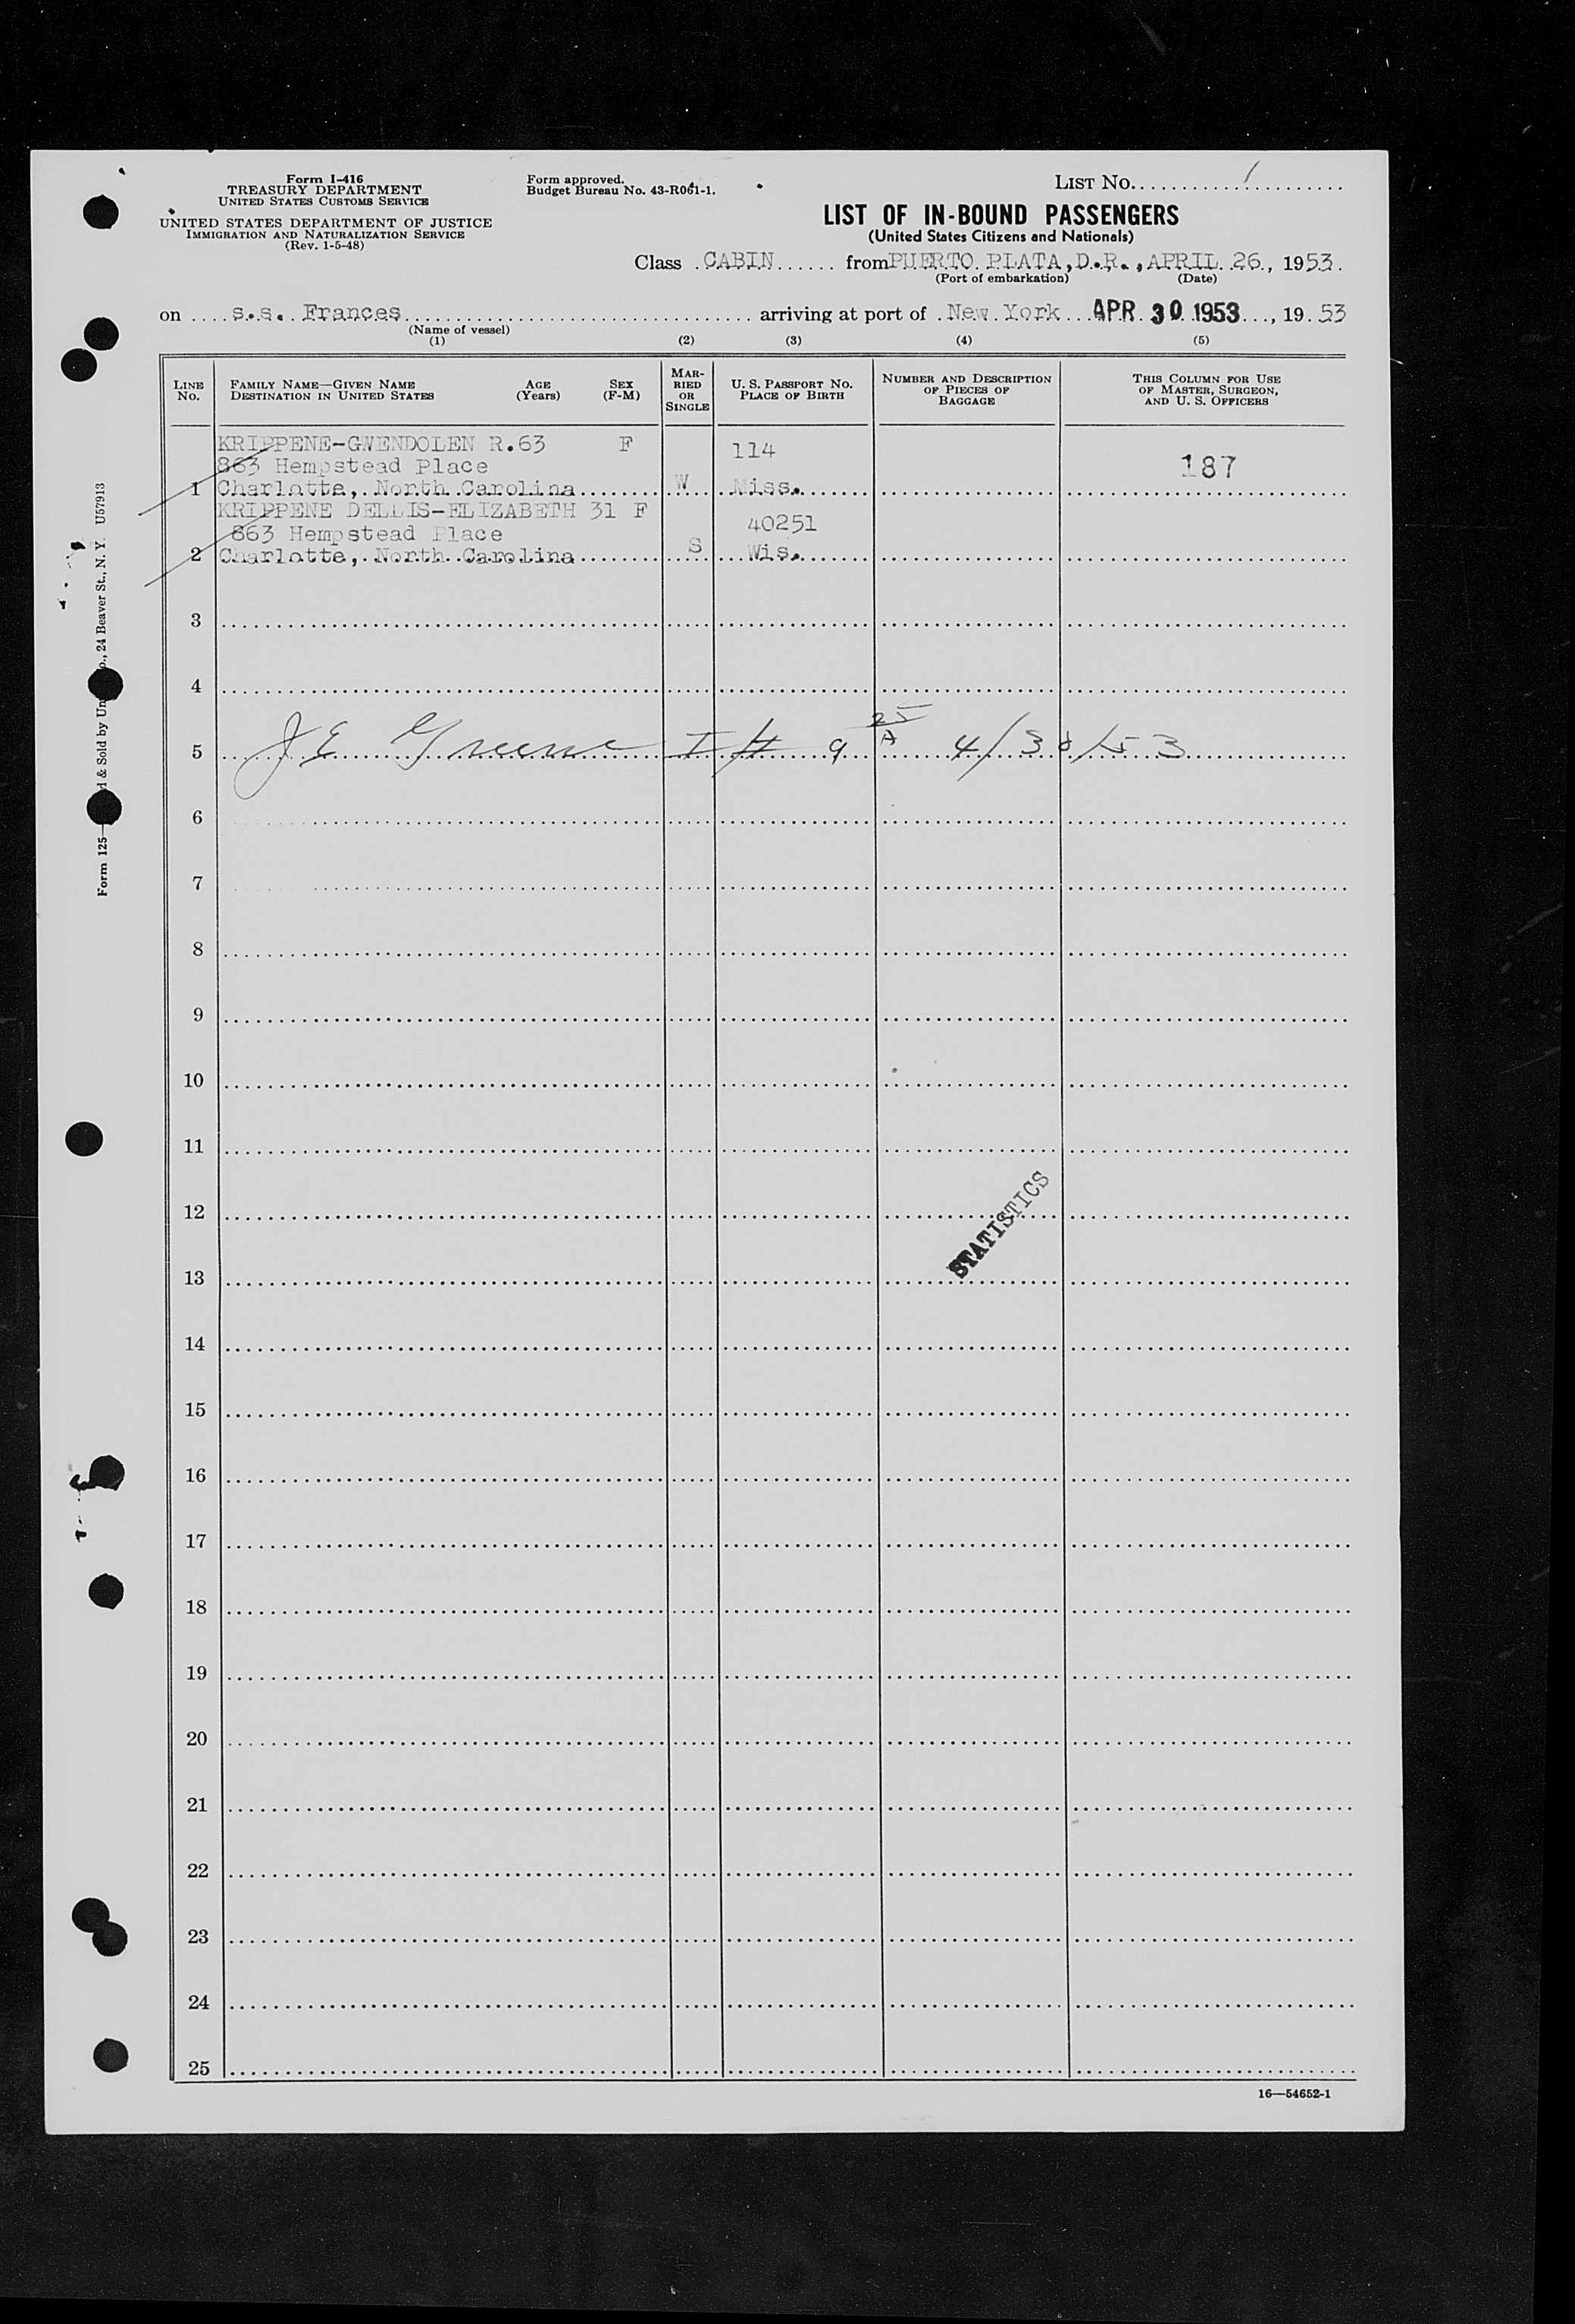 Form I-416
TREASURY DEPARTMENT
UNITED STATES CUSTOMS SERVICE
UNITED STATES DEPARTMENT OF JUSTICE
IMMIGRATION AND NATURALIZATION SERVICE
(Rev. 1-5-48)
Form approved.
Budget Bureau No. 43-R061-1.
LIST No. 1
LIST OF IN-BOUND PASSENGERS
(United States Citizens and Nationals)
Class CABIN from PUERTO PLATA, D.R., APRIL 26, 1953.
(Port of embarkation) (Date)
on s.s. Frances arriving at port of New York APR 30 1953, 19 53
(Name of vessel)
(1) (2) (3) (4) (5)
LINE No.
FAMILY NAME—GIVEN NAME
DESTINATION IN UNITED STATES
AGE (Years)
SEX (F-M)
MARRIED OR SINGLE
U. S. PASSPORT No.
PLACE OF BIRTH
NUMBER AND DESCRIPTION OF PIECES OF BAGGAGE
THIS COLUMN FOR USE OF MASTER, SURGEON, AND U. S. OFFICERS
KRIPPENE-GWENDOLEN R. 63 F 114
863 Hempstead Place 187
1 Charlotte, North Carolina W Miss.
KRIPPENE DELLIS-ELIZABETH 31 F 40251
863 Hempstead Place
2 Charlotte, North Carolina S Wis.
3
4
5 J E Greene 9 25 A 4/30/53
6
7
8
9
10
11
12
STATISTICS
13
14
15
16
17
18
19
20
21
22
23
24
25
16—54652-1
Form 125— d & Sold by Un o., 24 Beaver St., N. Y. U57913